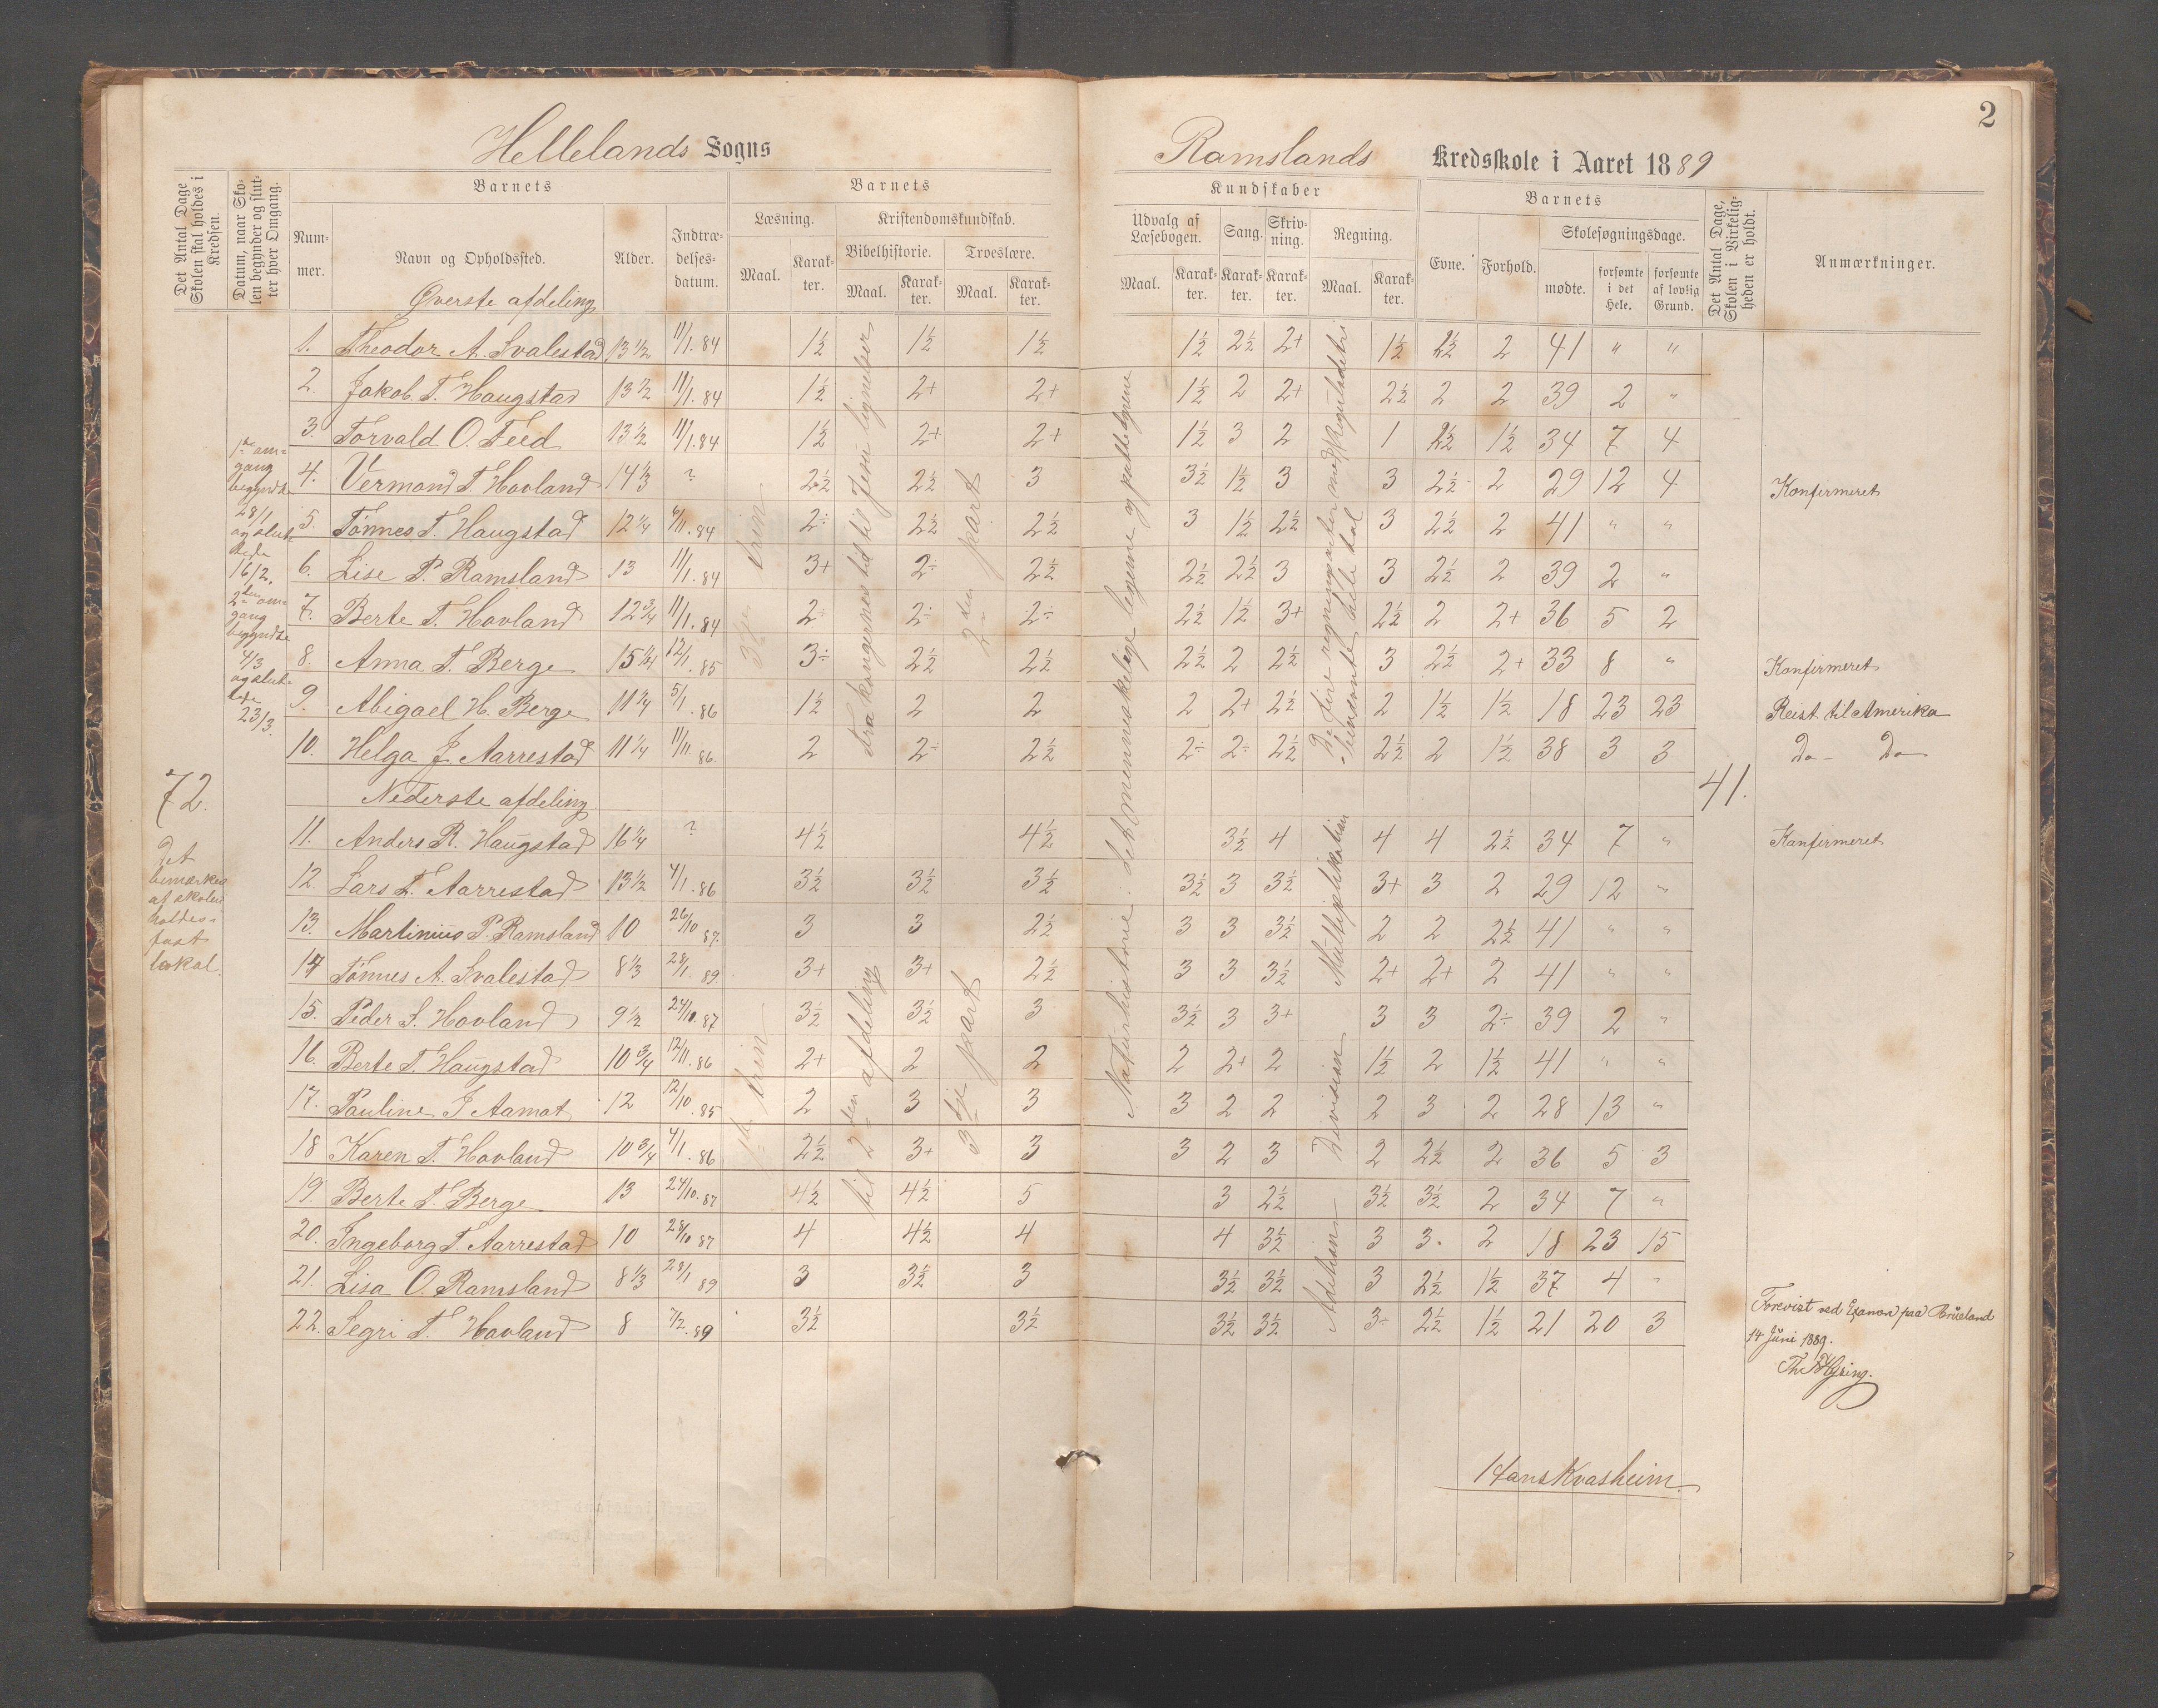 2
Hellelands Sogns
Ramslands Kredsskole i Aaret 1889
Det Antal Dage Skolen skal holdes i Kredsen.
Datum, naar Skolen begynder og slutter hver Omgang.
Barnets
Nummer.
Navn og Opholdssted.
Alder.
Indtrædelsesdatum.
Barnets
Læsning.
Kristendomskundskab.
Bibelhistorie.
Troeslære.
Maal. Karakter. Maal. Karakter. Maal. Karakter.
Kundskaber
Udvalg af Læsebogen. Sang. Skrivning. Regning.
Maal. Karakter. Karakter. Karakter. Maal. Karakter.
Barnets
Evne. Forhold. Skolesøgningsdage.
mødte. forsømte i det Hele. forsømte af lovlig Grund.
Det Antal Dage, Skolen i Virkeligheden er holdt.
Anmærkninger.
Øverste afdeling
1. Theodor A. Svalestad 13 1/2 11/1.84 1½ 1½ 1½ 1½ 2½ 2+ 1½ 2½ 2 41 " "
2. Jakob T. Haugstad 13 1/2 11/1.84 1½ 2+ 2+ 1½ 2 2+ 2½ 2 2 39 2 "
3. Torvald O. Teed 13 1/2 11/1.84 1½ 2+ 2+ 1½ 3 2 1 2½ 1½ 34 7 4
4. Vermond T. Hovland 14 1/3 ? 2½ 2½ 3 3½ 1½ 3 3 2½ 2 29 12 4 Konfirmeret
5. Tønnes T. Haugstad 12 1/4 6/11.84 2÷ 2½ 2½ 3 1½ 2½ 3 2½ 2 41 " "
6. Lise P. Ramsland 13 11/1.84 3+ 2÷ 2½ 2½ 2½ 3 3 2½ 2 39 2 "
7. Berte T. Hovland 12 3/4 11/1.84 2÷ 2÷ 2÷ 2½ 1½ 3+ 2½ 2 2+ 36 5 2
8. Anna T. Berge 15 1/4 12/1.85 3÷ 2½ 2½ 2½ 2 2½ 3 2½ 2+ 33 8 " Konfirmeret
9. Abigael H. Berge 11 1/4 5/1.86 1½ 2 2 2 2+ 2½ 2 1½ 1½ 18 23 23 Reist til Amerika
10. Helga J. Aarrestad 11 1/4 11/11.86. 2 2÷ 2½ 2÷ 2÷ 2½ 2½ 2 1½ 38 3 3 Do - Do
Nederste afdeling
11. Anders R. Haugstad 16 1/4 ? 4½ 4½ 3½ 4 4 4 2½ 34 7 " Konfirmeret
12. Lars T. Aarrestad 13 1/2 4/1.86 3½ 3½ 3½ 3½ 3 3½ 3+ 3 2 29 12 "
13. Martinius P. Ramsland 10 26/10 87. 3 3 2½ 3 3 3½ 2 2 2½ 41 " "
14 Tønnes A. Svalestad 8 1/3 28/1.89. 3+ 3+ 2½ 3 3 3½ 2+ 2+ 2 41 " "
15. Peder S. Hovland 9 1/2 24/10.87 3½ 3½ 3 3½ 3 3+ 3 3 2÷ 39 2 "
16. Berte T. Haugstad 10 3/4 12/11.86 2+ 2 2 2 2+ 2 1½ 2 1½ 41 " "
17. Pauline J Aamot 12 12/10.85 2 3 3 3 2 2 2 3 2 28 13 "
18 Karen T. Hovland 10 3/4 4/1.86 2½ 3+ 3 3 2 3 2 2½ 2 36 5 3
19. Berte T. Berge 13 24/10.87 4½ 4½ 5 3 2½ 3½ 3½ 2 34 7 "
20. Ingeborg T. Aarrestad 10 28/10 87 4 4½ 4 4 3½ 3 3. 2 18 23 15
21. Lisa O. Ramsland 8 1/3 28/1 89 3 3½ 3 3½ 3½ 3 2½ 1½ 37 4 "
22. Segri T. Hovland 8 7/2.89 3½ 3½ 3½ 3½ 3÷ 2½ 1½ 21 20 3
1ste omgang begyndte 28/1 og sluttede 16/2.
2den omgang begyndte 4/3 og sluttede 23/3.
72.
Det bemærkes at skolen holdes i fast lokal.
3die trin
Fra kongernes tid til Jesu lignelser
2den part
til 2den afdeling
3die part
Naturhistorie: det menneskelige legeme og pattedyrene
De fire regningsarter med
benævnte hele tal
Multiplikation
Division
Adition
41.
Forevist ved Examen paa
14 Juni 1889.
Hans Kvasheim.